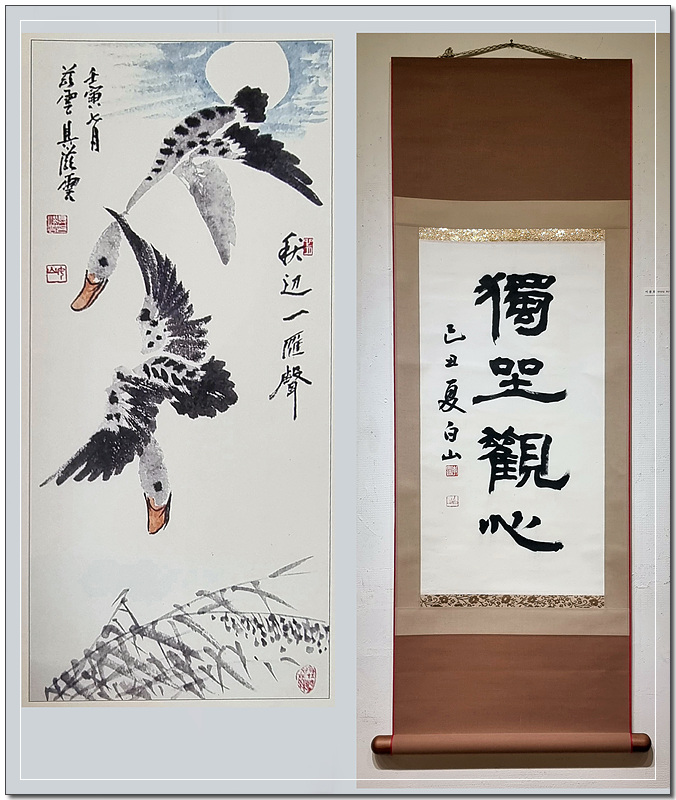 秋辺一雁聲
壬寅七月
雲具滋雲
獨坐觀心
己丑夏白山